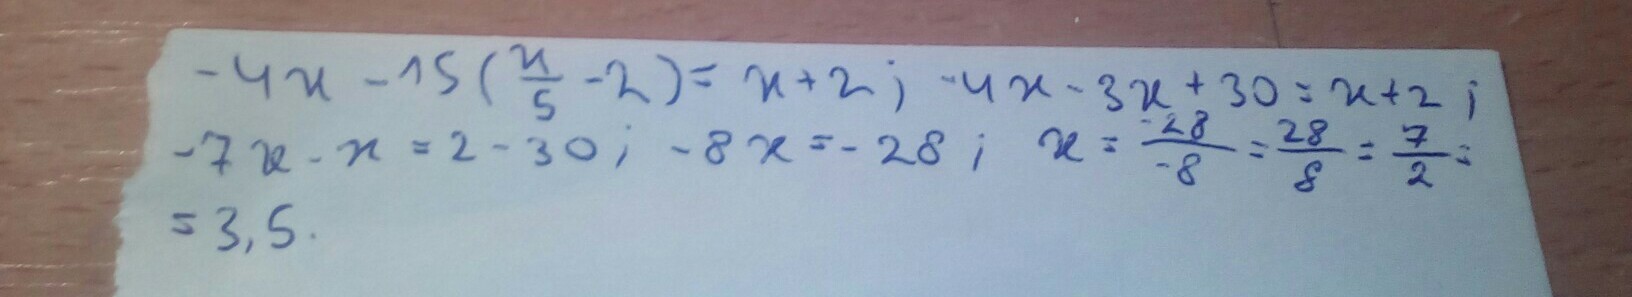 -4x - 15(x/5 - 2) = x+2; -4x - 3x + 30 = x+2;
-7x - x = 2 - 30; -8x = -28; x = -28/-8 = 28/8 = 7/2 =
= 3,5.